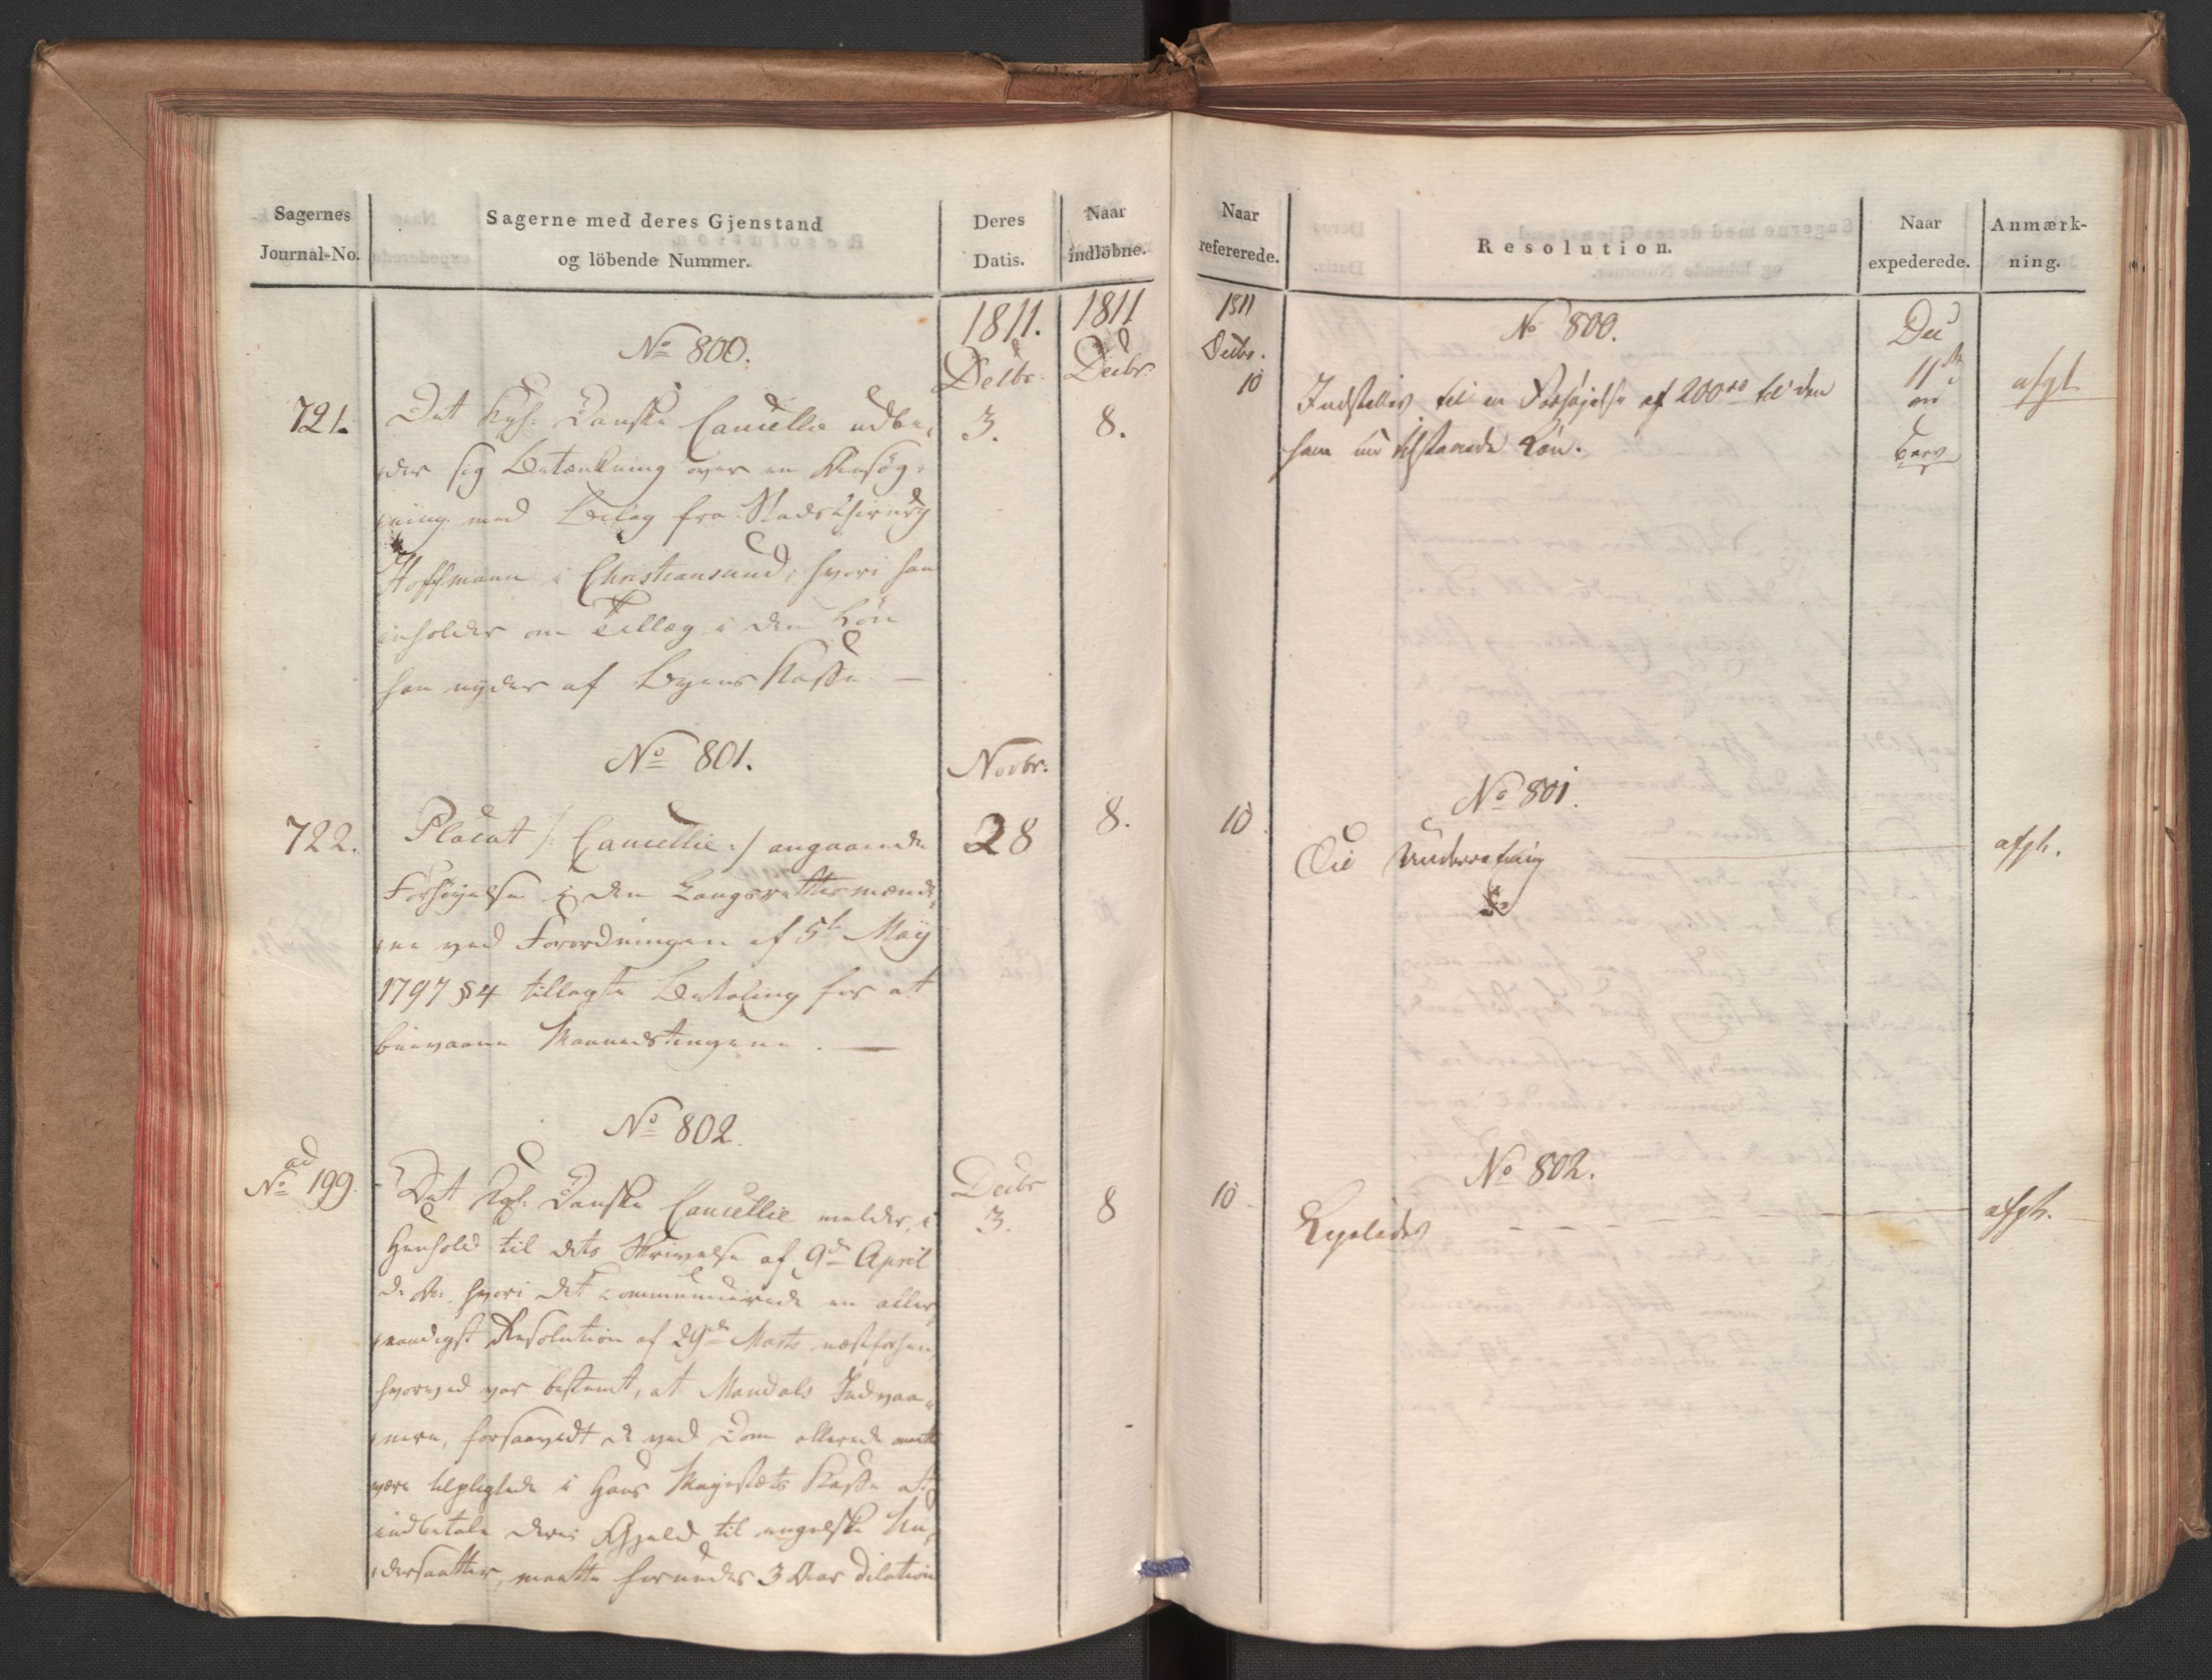 Sagernes
Journal-No.
Sagerne med deres Gjenstand
og löbende Nummer.
Deres
Datis.
Naar
indlöbne.
1811.
1811
No 800.
Decbr.
Decbr.
721.
Det Kgl. Danske Cancellie udbe-
3.
8.
der sig Betænkning over en Ansög-
ning med Bilag fra Stadschirurg
Hoffmann i Christiansund, hvori han
anholder om Tillæg i den Lön
han nyder af Byens Kasse —
No 801.
Novbr.
722.
Placat /: Cancellie :/ angaaende
28
8.
Forhöyelse i den Laugrettesmænde-
ne ved Forordningen af 5te Maÿ
1797 § 4 tillagte Betaling for at
bievaane Maanedstingene. —
No 802.
ad
No 199.
Det Kgl. Danske Cancellie melder, i
Decbr
3.
8
Henhold til dets Skrivelse af 9de April
d. A. hvori det communicerede en aller-
naadigst Resolution af 29de Marts næstforhen,
hvorved var bestemt, at Mandals Indvaa-
nere, forsaavidt de ved Dom allerede maatte
være tilpligtede i Hans Majestæts Kasse at
indbetale deres Gjæld til engelske Un-
dersaatter, maatte forundes 3 Aars Dilation
Naar
refererede.
Resolution.
Naar
expederede.
Anmærk-
ning.
1811
Decbr.
10
No 800.
Dec
Indstilles til en Forhöjelse af 200 rd til den
11te
afgt
ham nu tilstaaede Lön.
No 801.
10
Til Underretning
afgt.
No 802.
10
Ligeledes
afgt.